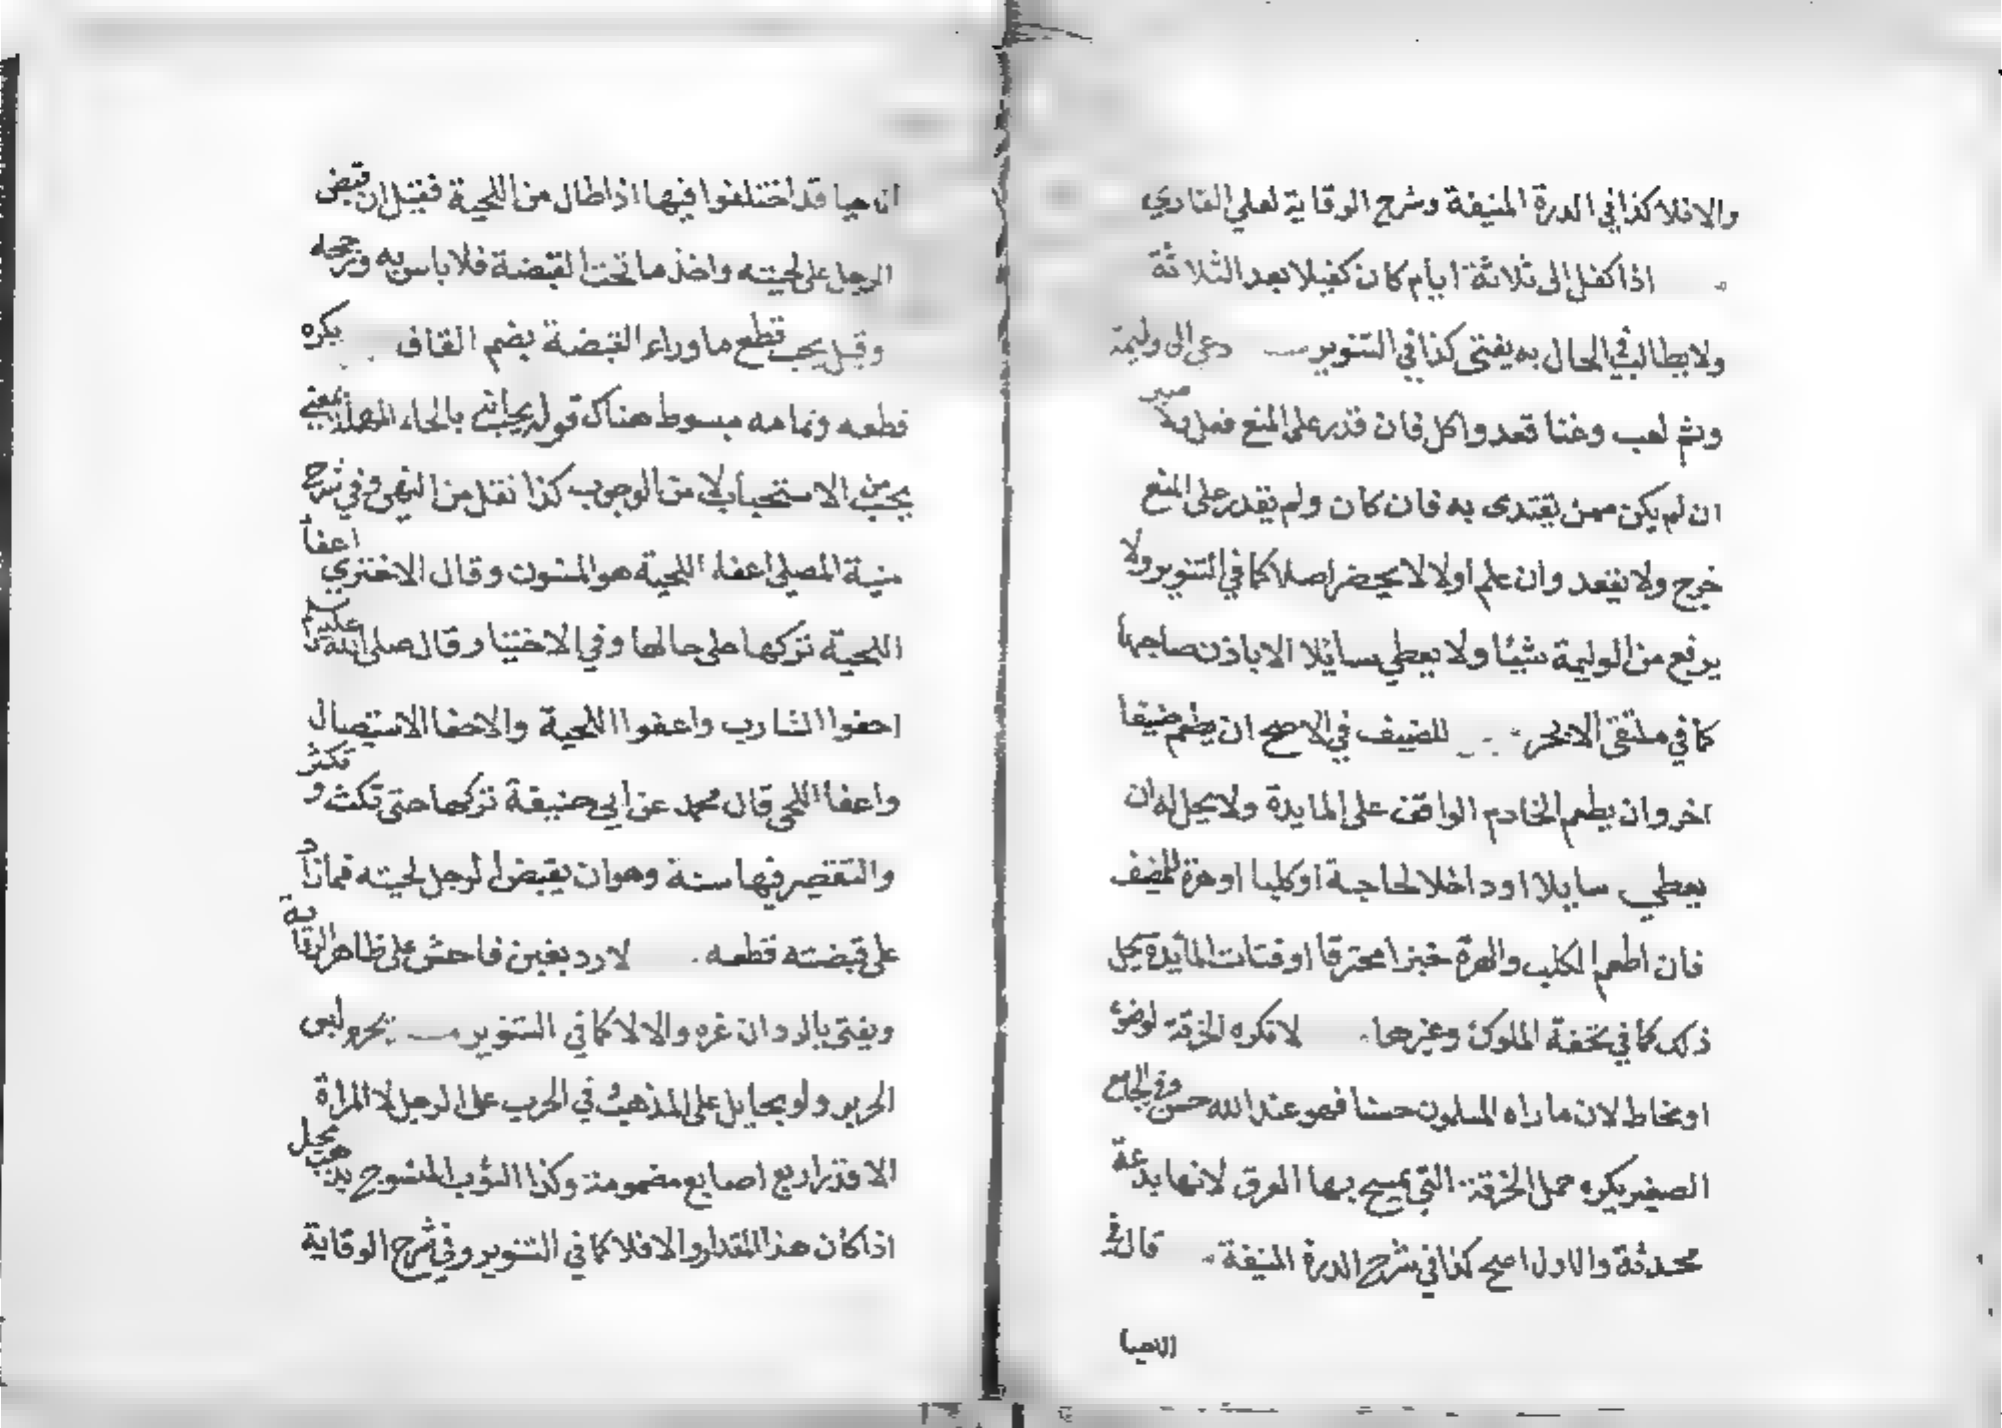 والا فلا كذا في الدرة المنيفة وشرح الوقاية لعلي القاري
اذا كفل الى ثلاثة ايام كان كفيلا بعد الثلاثة
ولا يطالب في الحال به يفتى كذا في التنوير دعي الى وليمة
وثم لعب وغنا قعد واكل فان قدر على المنع فعل والا صبر
ان لم يكن ممن يقتدى به فان كان ولم يقدر على المنع
خرج ولا يقعد وان علم اولا لا يحضر اصلا كما في التنوير ولا
يرفع من الوليمة شيئا ولا يعطي سايلا الا باذن صاحبها
كما في ملتقى الابحر للضيف في الاصح ان يطعم ضيفا
اخر وان يطعم الخادم الواقف على المايدة ولا يحل له ان
يعطي سايلا او داخلا لحاجة او كلبا او هرة للمضيف
فان اطعم الكلب والهرة خبزا محترقا او فتات المائدة يحل
ذلك كما في تحفة الملوك وغيرها لا تكره الخرقة لوضوء
او مخاط لان ما راه المسلمون حسنا فهو عند الله حسن وفي الجامع
الصغير يكره حمل الخرقة التي يمسح بها العرق لانها بدعة
محدثة والاول اصح كذا في شرح الدرة المنيفة قال في
ان حيا قد اختلفوا فيها اذا طال من اللحية فقيل ان قبض
الرجل على لحيته واخذ ما تحت القبضة فلا باس به ورجحه
وقيل يجب قطع ما وراء القبضة بضم القاف يكره
قطعه وتمامه مبسوط هناك قوله يحب اي بالحاء المهملة بمعنى
يحب من الاستحباب لا من الوجوب كذا نقل من النهر وفي شرح
منية المصلي اعفاء اللحية هو المسنون وقال الاختري اعفا
اللحية تركها على حالها وفي الاختيار قال صلى الله عليه
احفوا الشارب واعفوا اللحية والاحفا الاستيصال
واعفا اللحى قال محمد عن ابي حنيفة تركها حتى تكث وتكثر
والتقصير فيها سنة وهو ان يقبض الرجل لحيته فما زاد
على قبضته قطعه لا رد بغبن فاحش على ظاهر الرواية
ويفتى بالرد ان غره والا لا كما في التنوير يحرم لبس
الحرير ولو بحايل على المذهب في الحرب على الرجل لا المراة
الا قدر اربع اصابع مضمومة وكذا الثوب المنسوج بذهب يحل
اذا كان هذا المقدار والا فلا كما في التنوير وفي شرح الوقاية